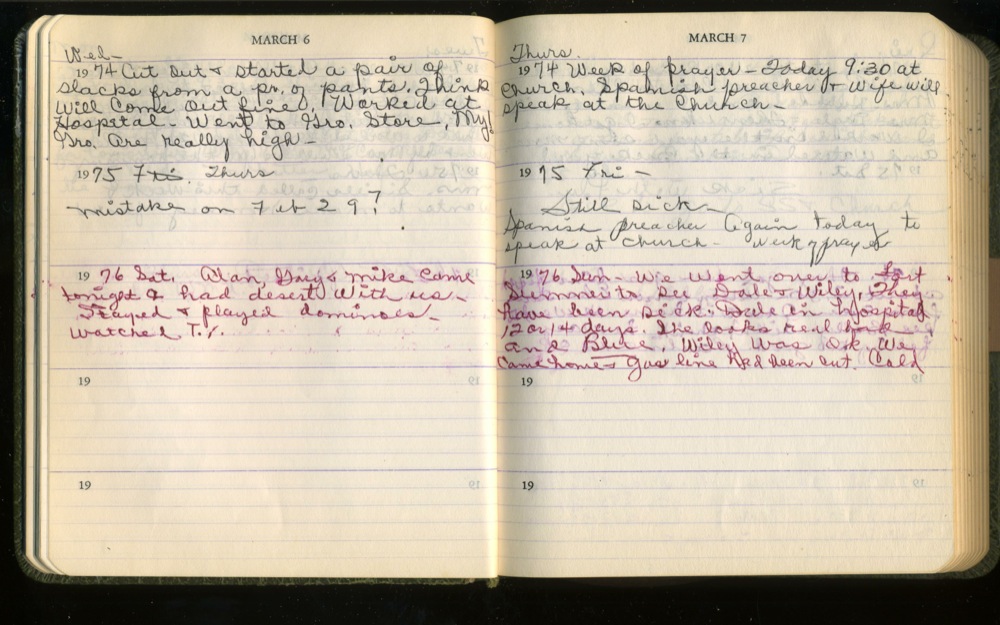 MARCH 6
Wed-
1974 Cut out & started a pair of
slacks from a pr. of pants. Think
will come out fine. Worked at
Hospital - Went to Gro. Store, My!
Gro. are really high -
1975 Fri. Thurs
mistake on Feb 29?
1976 Sat. Alan, & Mike came
tonight & had desert with us -
Stayed & played dominoes -
Watched T.V.
19
19
MARCH 7
Thurs.
1974 Week of prayer - Today 9:30 at
Church. Spanish preacher & Wife will
speak at the Church -
1975 Fri -
Still sick -
Spanish preacher again today to
speak at church - week of prayer
1976 Sun - We went over to Fort
Sumner to see Dale & Wiley. They
have been sick. Dale in Hospital
12 or 14 days. She looks real
and Blue. Wiley was ok. We
came home - gas line had been cut. Cold
19
19